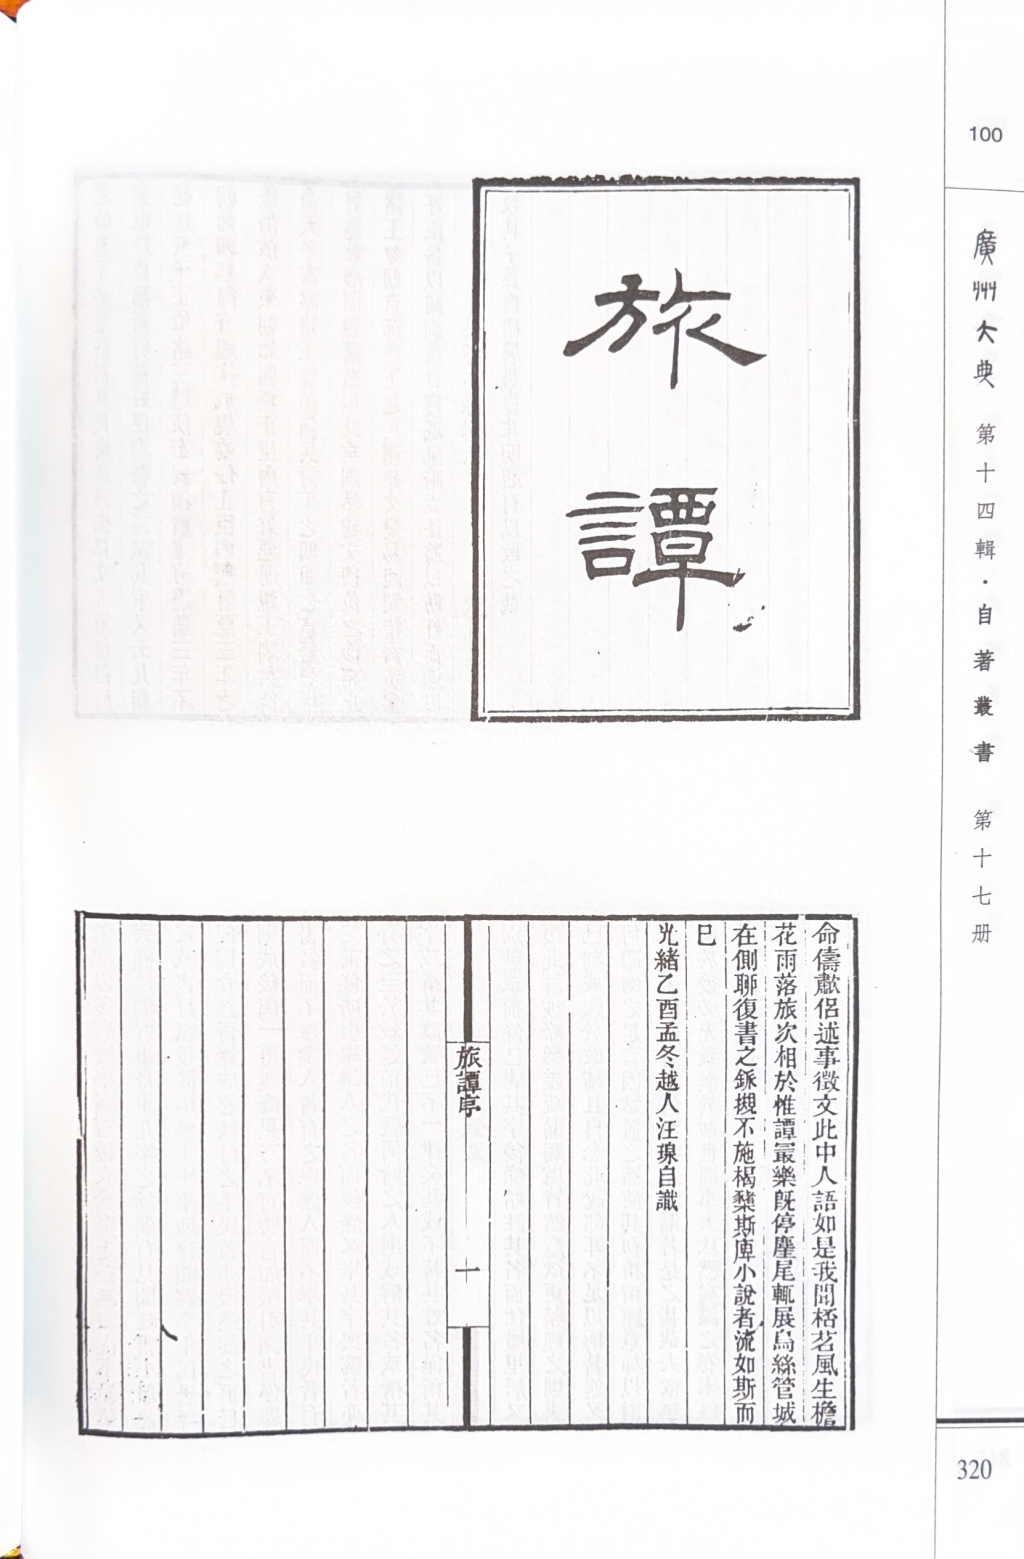 旅譚
命儔歗侶述事徵文此中人語如是我聞桮茗風生檐
花雨落旅次相於惟譚最樂旣停麈尾輒展烏絲管城
在側聊復書之鉩槻不施楬櫫斯庳小說者流如斯而
巳
光緒乙酉孟冬越人汪瑔自識
旅譚序
十
100
廣州大典
第十四輯·自著叢書
第十七册
320